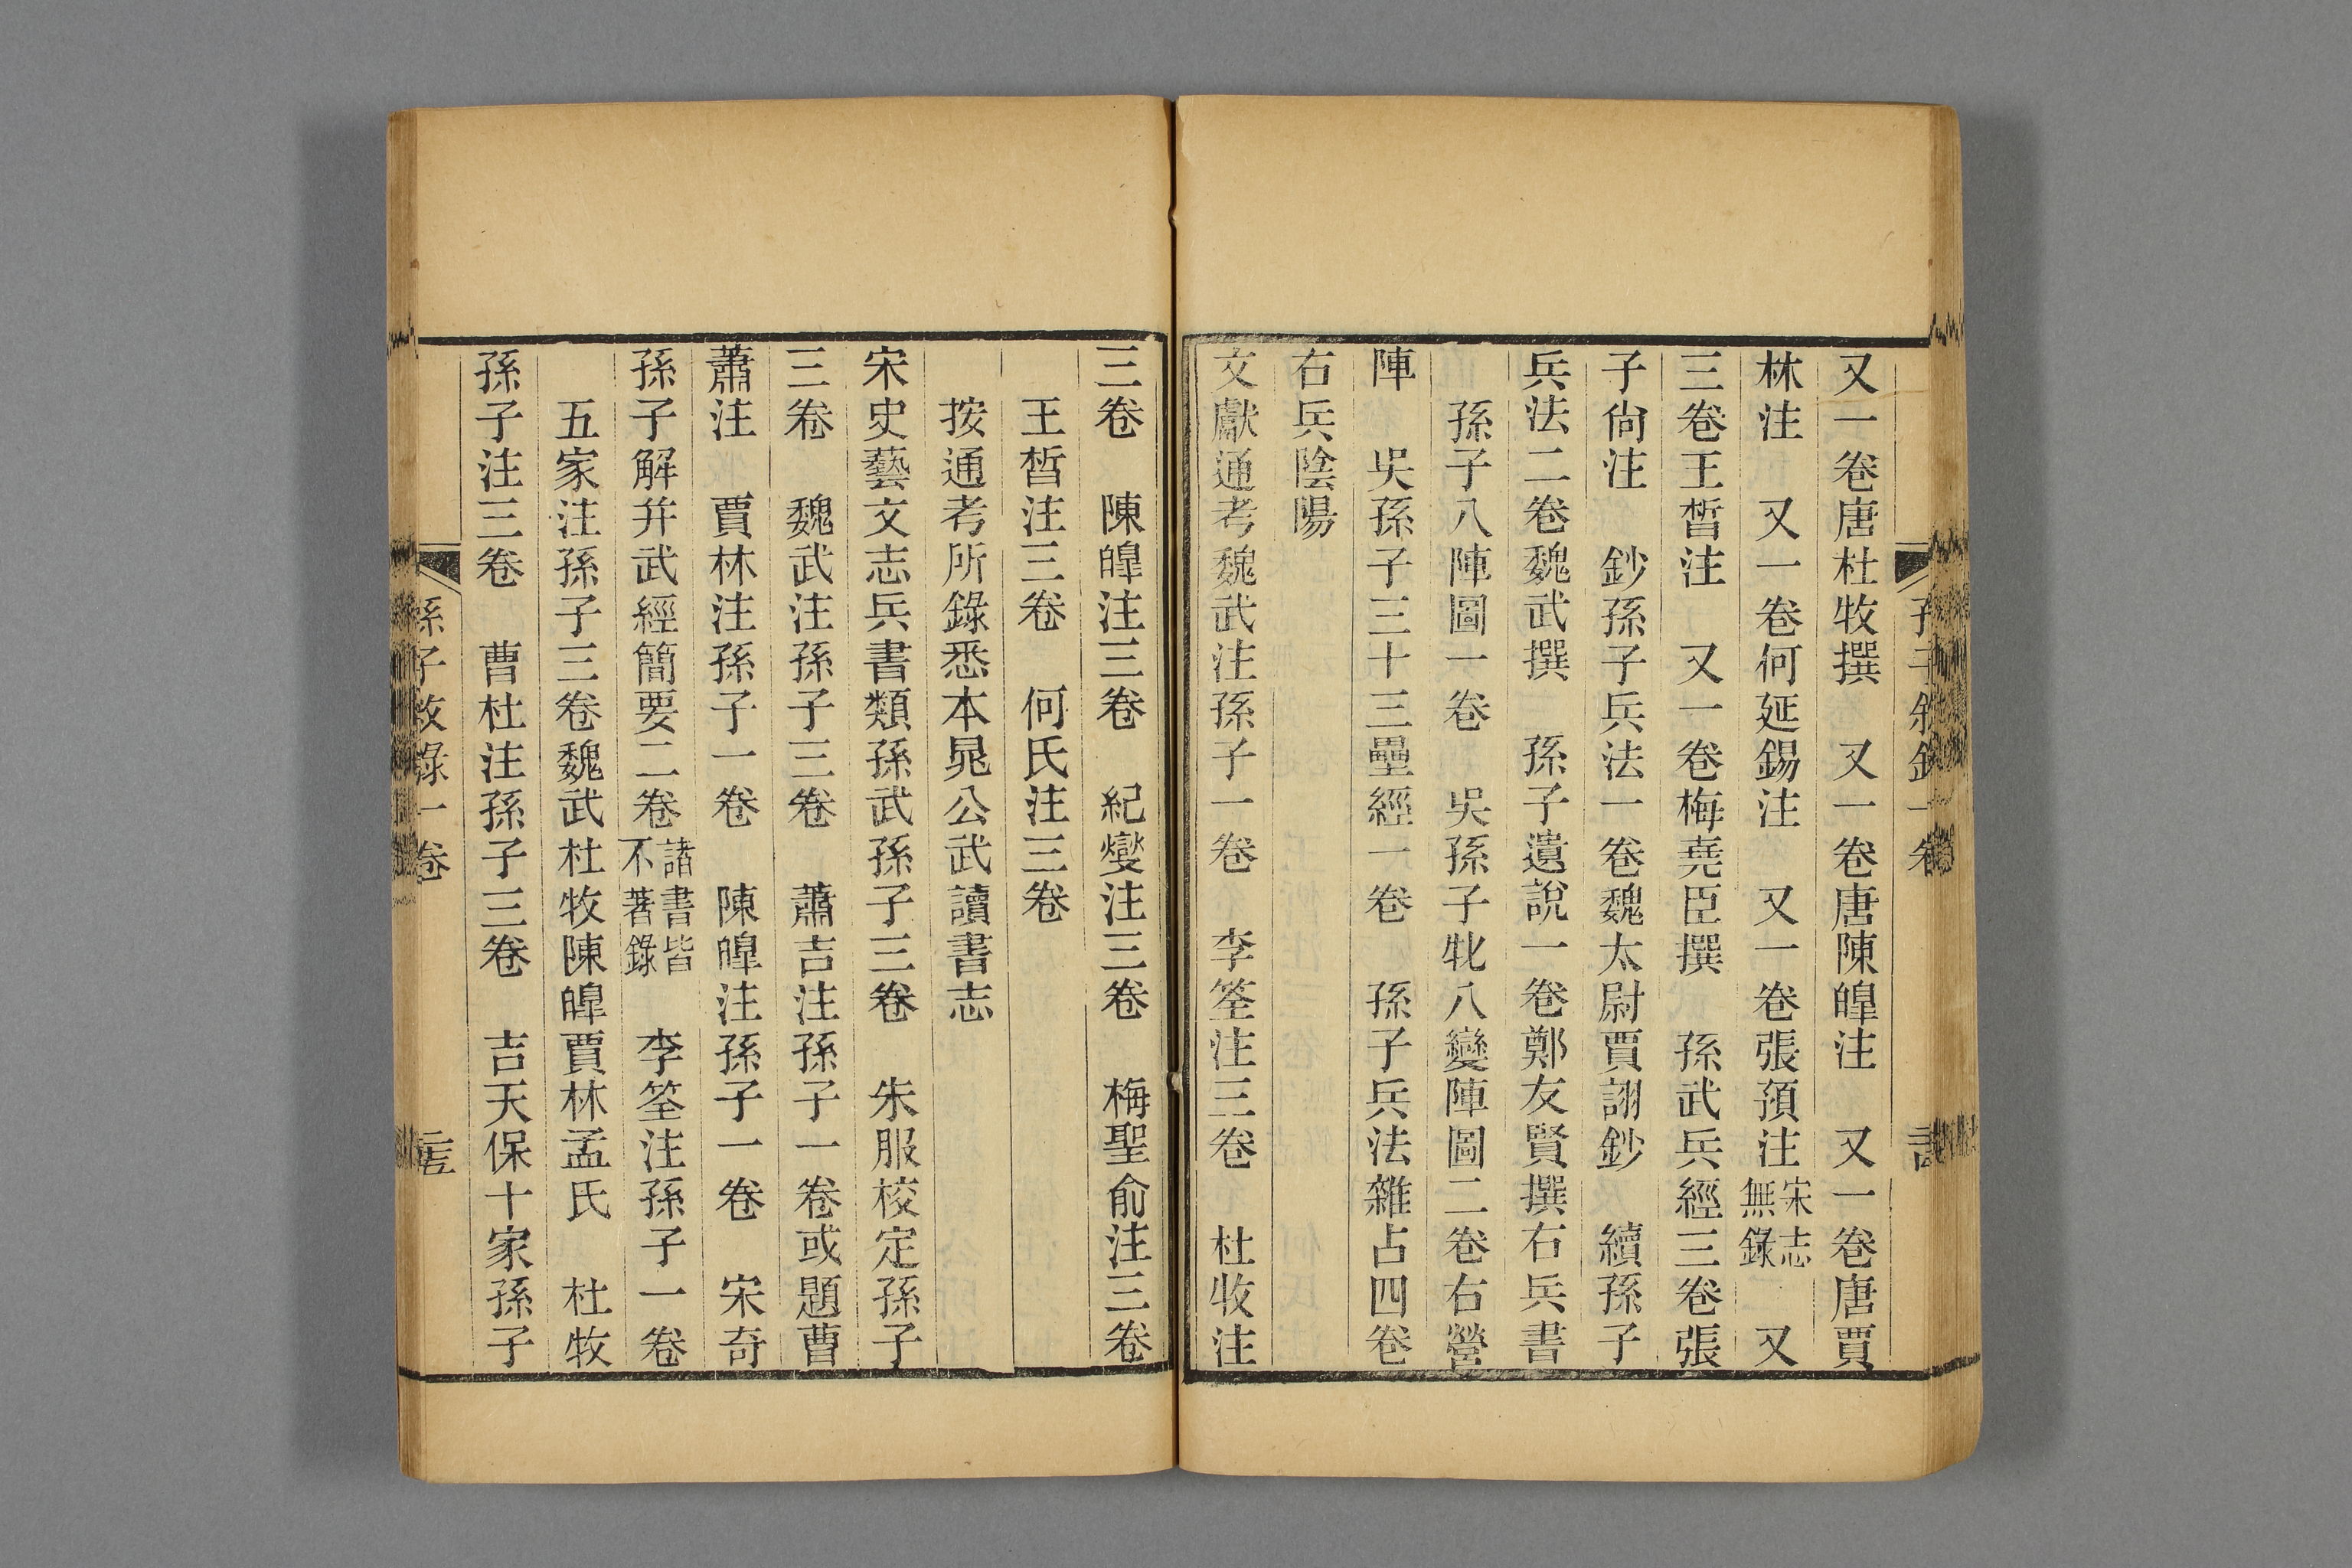 又一卷唐杜牧撰　又一卷唐陳皥注　又一卷唐賈
林注　又一卷何延錫注　又一卷張預注宋志無錄　又
三卷王晳注　又一卷梅堯臣撰　孫武兵經三卷張
子尙注　鈔孫子兵法一卷魏太尉賈詡鈔　續孫子
兵法二卷魏武撰　孫子遺說一卷鄭友賢撰右兵書
孫子八陣圖一卷　吳孫子牝八變陣圖二卷右營
陣　吳孫子三十三壘經一卷　孫子兵法雜占四卷
右兵陰陽
文獻通考魏武注孫子一卷　李筌注三卷　杜牧注
三卷　陳皥注三卷　紀燮注三卷　梅聖俞注三卷
王晳注三卷　何氏注三卷
按通考所錄悉本晁公武讀書志
宋史藝文志兵書類孫武孫子三卷　朱服校定孫子
三卷　魏武注孫子三卷　蕭吉注孫子一卷或題曹
蕭注　賈林注孫子一卷　陳皥注孫子一卷　宋奇
孫子解幷武經簡要二卷諸書皆不著錄　李筌注孫子一卷
五家注孫子三卷魏武杜牧陳皥賈林孟氏　杜牧
孫子注三卷　曹杜注孫子三卷　吉天保十家孫子
孫子敘錄一卷